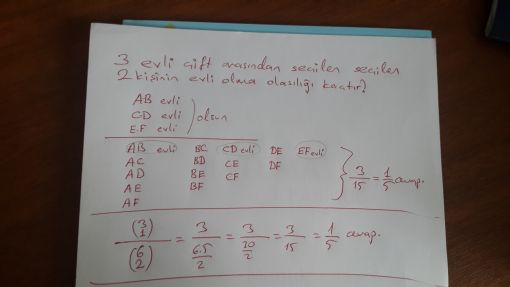 3 evli çift arasından seçilen seçilen
2 kişinin evli olma olasılığı kaçtır?
AB evli
CD evli } olsun
EF evli
AB evli BC CD evli DE EF evli
AC BD CE DF
AD BE CF
AE BF
AF
} 3/15 = 1/5 cevap.
(3 1)/(6 2) = 3/(6.5/2) = 3/(30/2) = 3/15 = 1/5 cevap.